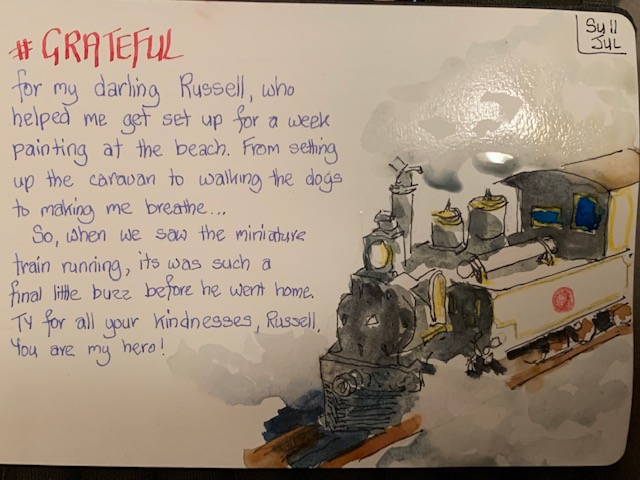 # GRATEFUL
Su 11
JUL
for my darling Russell, who
helped me get set up for a week
painting at the beach. From setting
up the caravan to walking the dogs
to making me breathe...
So, when we saw the miniature
train running, its was such a
final little buzz before he went home.
TY for all your kindnesses, Russell.
You are my hero!